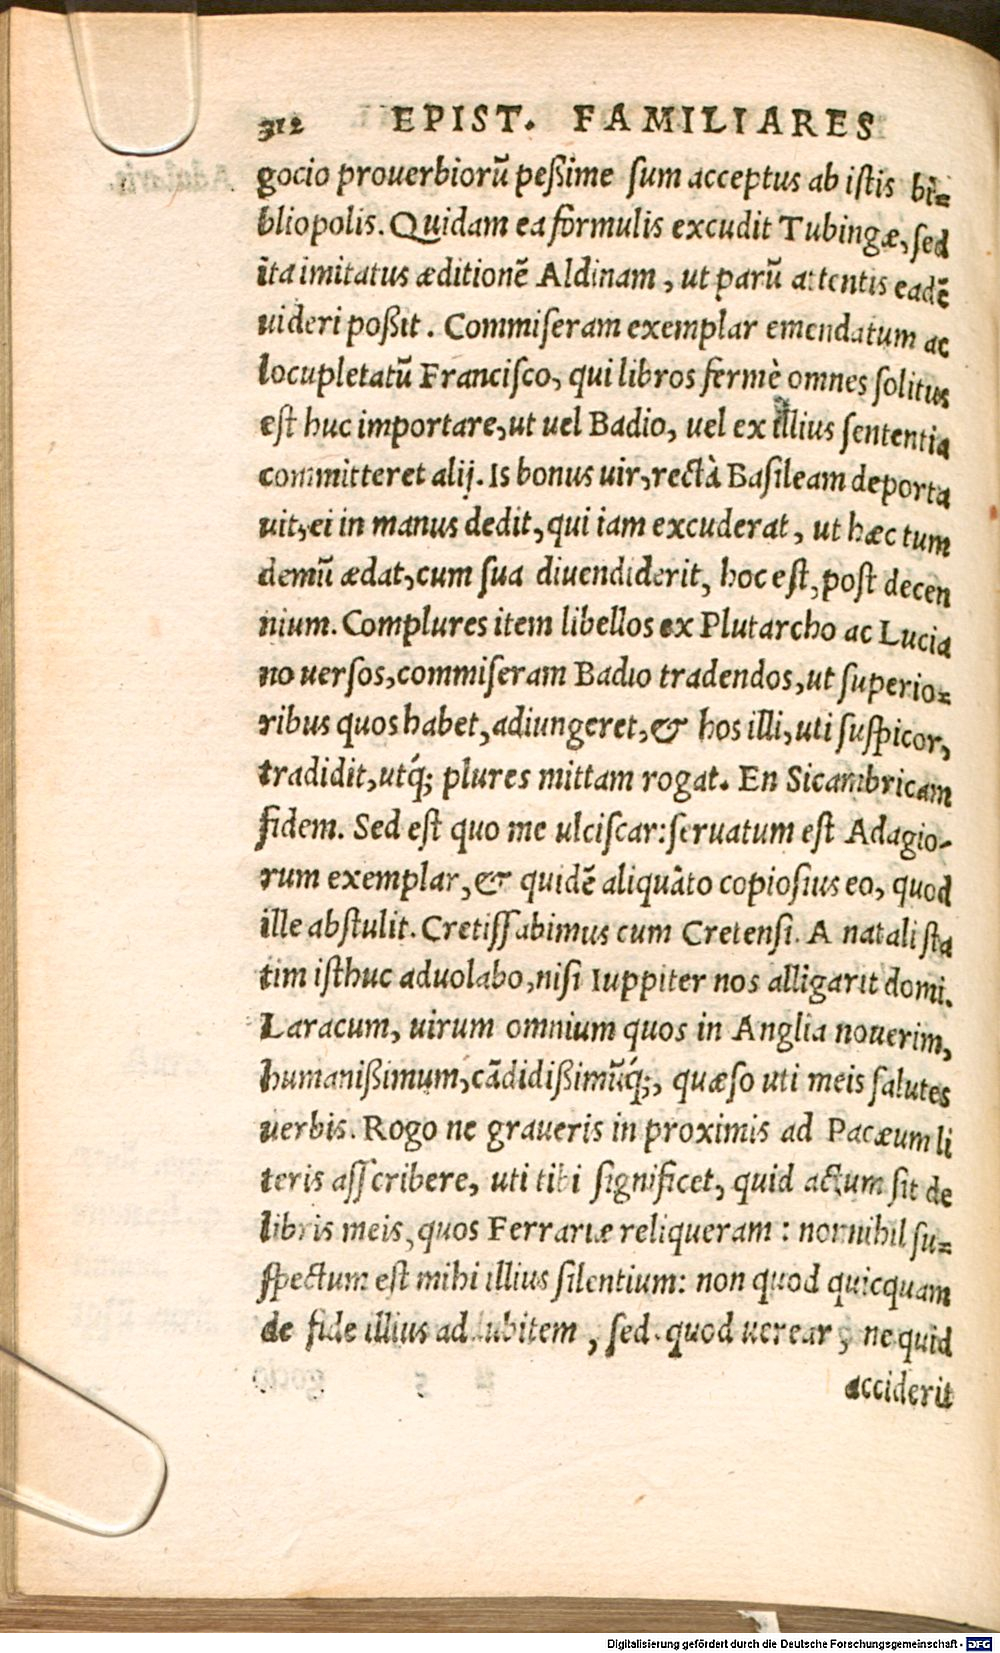 312 EPIST. FAMILIARES
gocio prouerbiorũ peßime sum acceptus ab istis bi-
bliopolis. Quidam ea formulis excudit Tubingæ, sed
ita imitatus æditionẽ Aldinam, ut parũ attentis eadẽ
uideri poßit. Commiseram exemplar emendatum ac
locupletatũ Francisco, qui libros fermè omnes solitus
est huc importare, ut uel Badio, uel ex illius sententia
committeret alij. Is bonus uir, rectà Basileam deporta
uit, ei in manus dedit, qui iam excuderat, ut hæc tum
demũ ædat, cum sua diuendiderit, hoc est, post decen
nium. Complures item libellos ex Plutarcho ac Lucia
no uersos, commiseram Badio tradendos, ut superio-
ribus quos habet, adiungeret, & hos illi, uti suspicor,
tradidit, utq́; plures mittam rogat. En Sicambricam
fidem. Sed est quo me ulciscar: seruatum est Adagio-
rum exemplar, & quidẽ aliquãto copiosius eo, quod
ille abstulit. Cretissabimus cum Cretensi. A natali sta
tim isthuc aduolabo, nisi Iuppiter nos alligarit domi.
Laracum, uirum omnium quos in Anglia nouerim,
humanißimum, cãdidißimũq́;, quæso uti meis salutes
uerbis. Rogo ne graueris in proximis ad Pacæum li
teris asscribere, uti tibi significet, quid actum sit de
libris meis, quos Ferrariæ reliqueram: nonnihil su-
spectum est mihi illius silentium: non quod quicquam
de fide illius addubitem, sed quod uerear, ne quid
acciderit
Digitalisierung gefördert durch die Deutsche Forschungsgemeinschaft - DFG